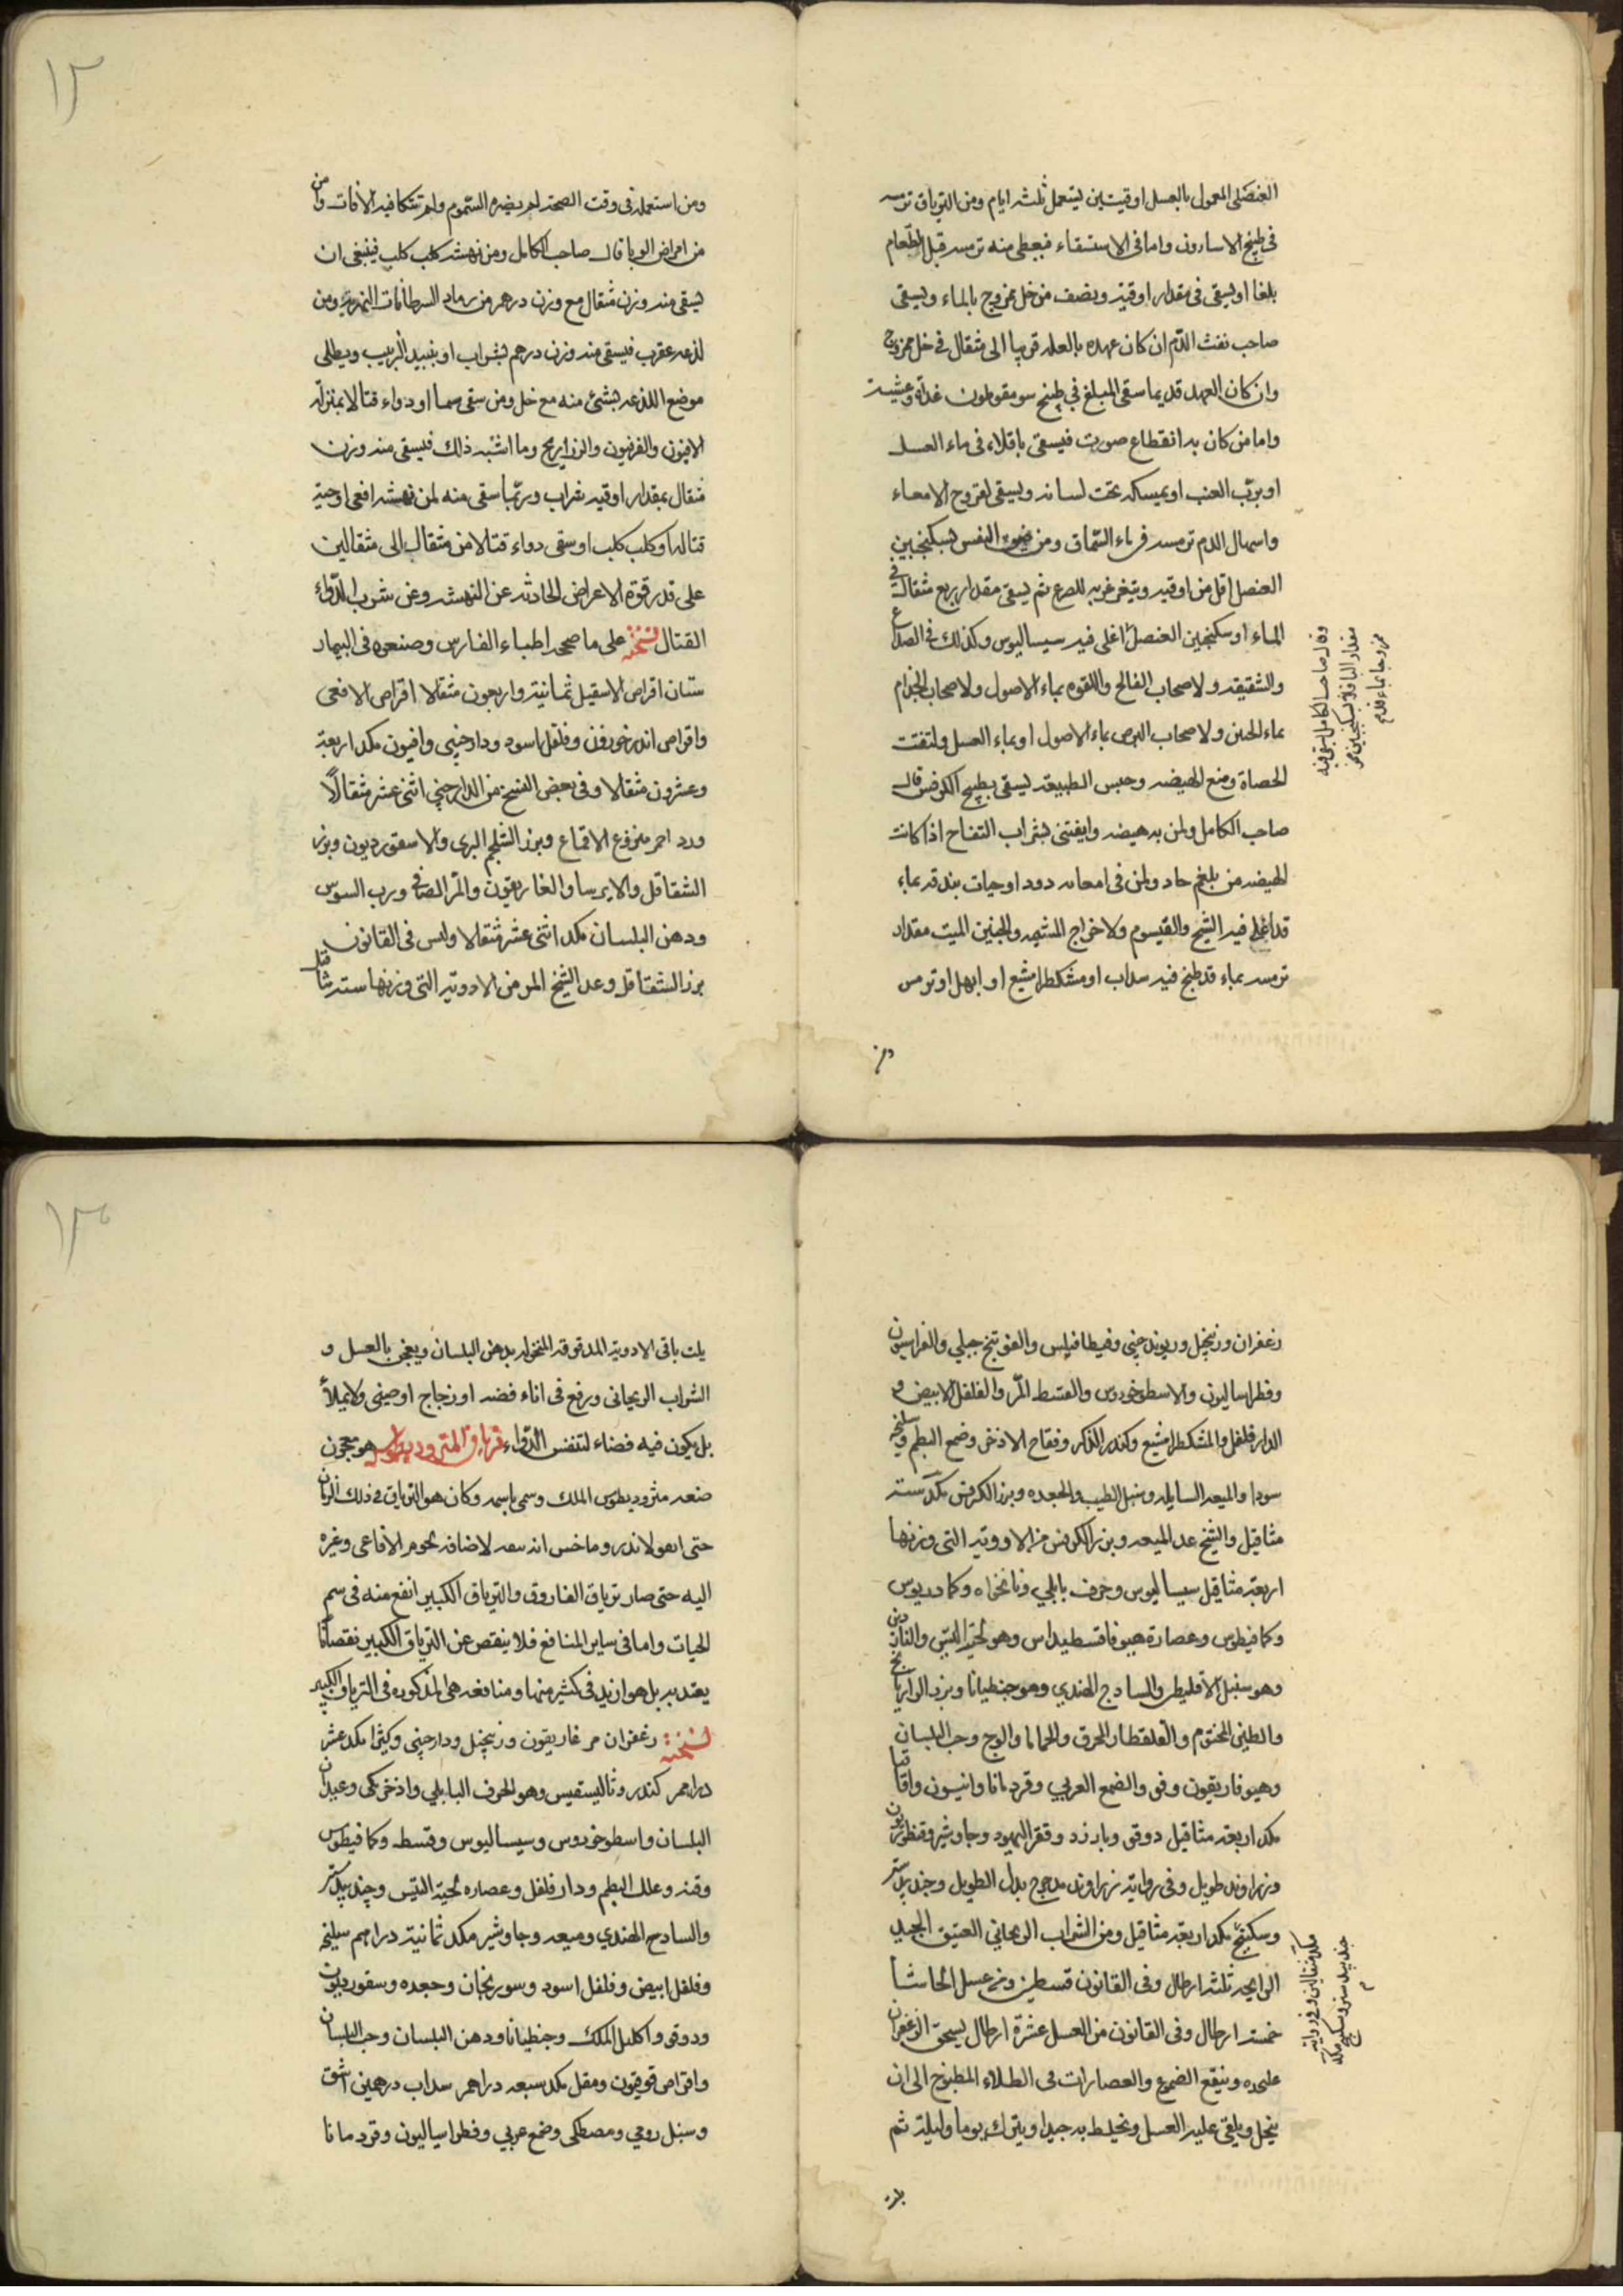 العنصلى المعمول بالعسل اوقيتين يستعمل ثلثه ايام ومن الترياق ترمسه
فى طبيخ الاسارون واما فى الاستسقاء فيعطى منه ترمسه قبل الطعام
بلعا او يسقى فى مقدار اوقيه ونصف من خل ممزوج بالماء ويسقى
صاحب نفث الدم ان كان عهده بالعله قريبا الى مثقال فى خل ممزوج
وان كان العهد قديما سقى المبلغ في طبيخ سومقوطون غداة وعشية
واما من كان به انقطاع صوت فيسقى باقلاء فى ماء العسل
او برب العنب او يمسكه تحت لسانه ويسقى لقروح الامعاء
واسهال الدم ترمسه فى ماء السماق ومن ضيق النفس بسكنجبين
العنصل اقل من اوقيه ويتغرغر به للصرع ثم يسقى مقدار ربع مثقال فى
الماء او سكنجبين العنصل اغلى فيه سيساليوس وكذلك فى الصداع
والشقيقه ولاصحاب الفالج واللقوه بماء الاصول ولاصحاب الجذام
بماء الجبن ولاصحاب البرص بماء الاصول او بماء العسل ولتفتت
الحصاة ومنع الهيضه وحبس الطبيعه يسقى بطبيخ الكرفس قال
صاحب الكامل ولمن به هيضه وايفتنى بشراب التفاح اذا كانت
الهيضه من بلغم حاد ولمن فى امعائه دود او حيات بندقه بماء
قد اغلى فيه الشيح والقيسوم ولاخراج المشيمه والجنين الميت مقدار
ترمسه بماء قد طبخ فيه سداب او مشكطرامشيع او ابهل او ترمس
وقال صاحب الكامل يسقى فيه
مقدار الباقلاء بسكنجبين
ممزوجا بماء
ومن
١٢
ومن استعمله فى وقت الصحة لم يضره السموم ولم تتكا فيه الافات وامن
من امراض الوبا قال صاحب الكامل ومن نهشه كلب كلب فينبغى ان
يسقى منه وزن مثقال مع وزن درهم من رماد السرطانات النهرية ومن
لذعه عقرب فيسقى منه وزن درهم بشراب او بنبيذ الزبيب ويطلى
موضع اللذعه بشئ منه مع خل ومن سقى سما او دواء قتالا بمنزلة
الافيون والفربيون والذراريح وما اشبه ذلك فيسقى منه وزن
مثقال بمقدار اوقيه شراب وربما سقى منه لمن نهشه افعى او حية
قتاله او كلب كلب او سقى دواء قتالا من مثقال الى مثقالين
على قدر قوة الاعراض الحادثه عن النهش وعن شرب الدواء
القتال نسخته على ما صححه اطباء الفارس وصنعوه فى البيمار
ستان اقراص الاسقيل ثمانية واربعون مثقالا اقراص الافعى
واقراص اندرخورون وفلفل اسود ودارصينى وافيون مكد اربعة
وعشرون مثقالا وفى بعض النسخ من الدارصينى اثنى عشر مثقالًا
ورد احمر منزوع الاقماع وبزر الشلجم البرى والاسقورديون وبزر
الشقاقل والايرسا والغاريقون والمر الصافى ورب السوس
ودهن البلسان مكد اثنى عشر مثقالا وليس فى القانون
بزر الشقاقل وعد الشيخ المر من الادوية التى وزنها ستة مثاقيل
زعفران وزنجبل وريوند چينى وفيطافيلس والفوتنج جبلي والفراسيون
وفطراساليون والاسطوخودوس والقسط المر والفلفل الابيض و
الدارفلفل والمشكطرامشيع وكندر الذكر وفقاح الاذخر وضمغ البطم وسليخه
سودا والميعه السايله وسنبل الطيب والجعده وبزر الكرفس مكد ستة
مثاقيل والشيخ عد الميعه وبزر الكرفس من الادوية التى وزنها
اربعة مثاقيل سيساليوس وحرف بابلي ونانخواه وكمادريوس
وكمافيطوس وعصارة هيوفاقسطيداس وهو لحية التيس والناردين
وهو سنبل الاقليطى والسادج الهندي وهو جنطيانا وبزر الرازيانج
والطين المختوم والقلقطار المحرق والحماما والوج وحب البلسان
وهيوفاريقون وفو والضمغ العربي وقردمانا وانيسون واقاقيا
مكد اربعة مثاقيل دوقو وبارزد وقفر اليهود وجاوشير وقنطوريون
وزراوند طويل وفى رواية زراوند مدحرج بدل الطويل وجندبيدستر
وسكبينج مكد اربعة مثاقيل ومن الشراب الريحاني العتيق الجيد
الرايحه ثلثه ارطال وفى القانون قسطين ومن عسل الحاشا
خمسه ارطال وفى القانون من العسل عشرة ارطال يسحق الزعفران
عليحده وينقع الضموغ والعصارات فى الطلاء المطبوخ الى ان
ينحل ويلقى عليه العسل ويخلط به جيدا ويترك يوما وليلة ثم
مكد مثقالين وفى رواية
جندبيدستر وسكبينج مكد
يلت
١٣
يلت باقى الادوية المدقوقه المنخوله بدهن البلسان ويعجن بالعسل و
الشراب الريحانى ويرفع فى اناء فضه او زجاج او صينى ولا يملأ
بل يكون فيه فضاء لتنفس الدواء ترياق المثروديطوس هو معجون
صنعه مثروديطوس الملك وسمى باسمه وكان هو الترياق فى ذلك الزمان
حتى اندروماخس انه لاضافة لحوم الافاعى وغيره
اليه حتى صار ترياق الفاروق والترياق الكبير انفع منه فى سم
الحيات واما فى ساير المنافع فلا ينقص عن الترياق الكبير نقصانا
يعتد به بل هو ازيد فى كثير منها ومنافعه هى المذكوره فى الترياق الكبير
نسخته زعفران مر غاريقون وزنجبيل ودارچينى وكثيرا مكد عشر
دراهم كندر وثاليسقيس وهو الحرف البابلي واذخر مكى وعيدان
البلسان واسطوخودوس وسيساليوس وقسط وكمافيطوس
وقنه وعلك البطم ودارفلفل وعصاره لحية التيس وجندبيدستر
والسادج الهندي وميعه وجاوشير مكد ثمانية دراهم سليخه
وفلفل ابيض وفلفل اسود وسورنجان وجعده وسقورديون
ودوقو واكليل الملك وجنطيانا ودهن البلسان وحب البلسان
واقراص قوفيون ومقل مكد سبعه دراهم سداب درهمين اشق
وسنبل رومي ومصطكى وضمغ عربي وفطراساليون وقردمانا